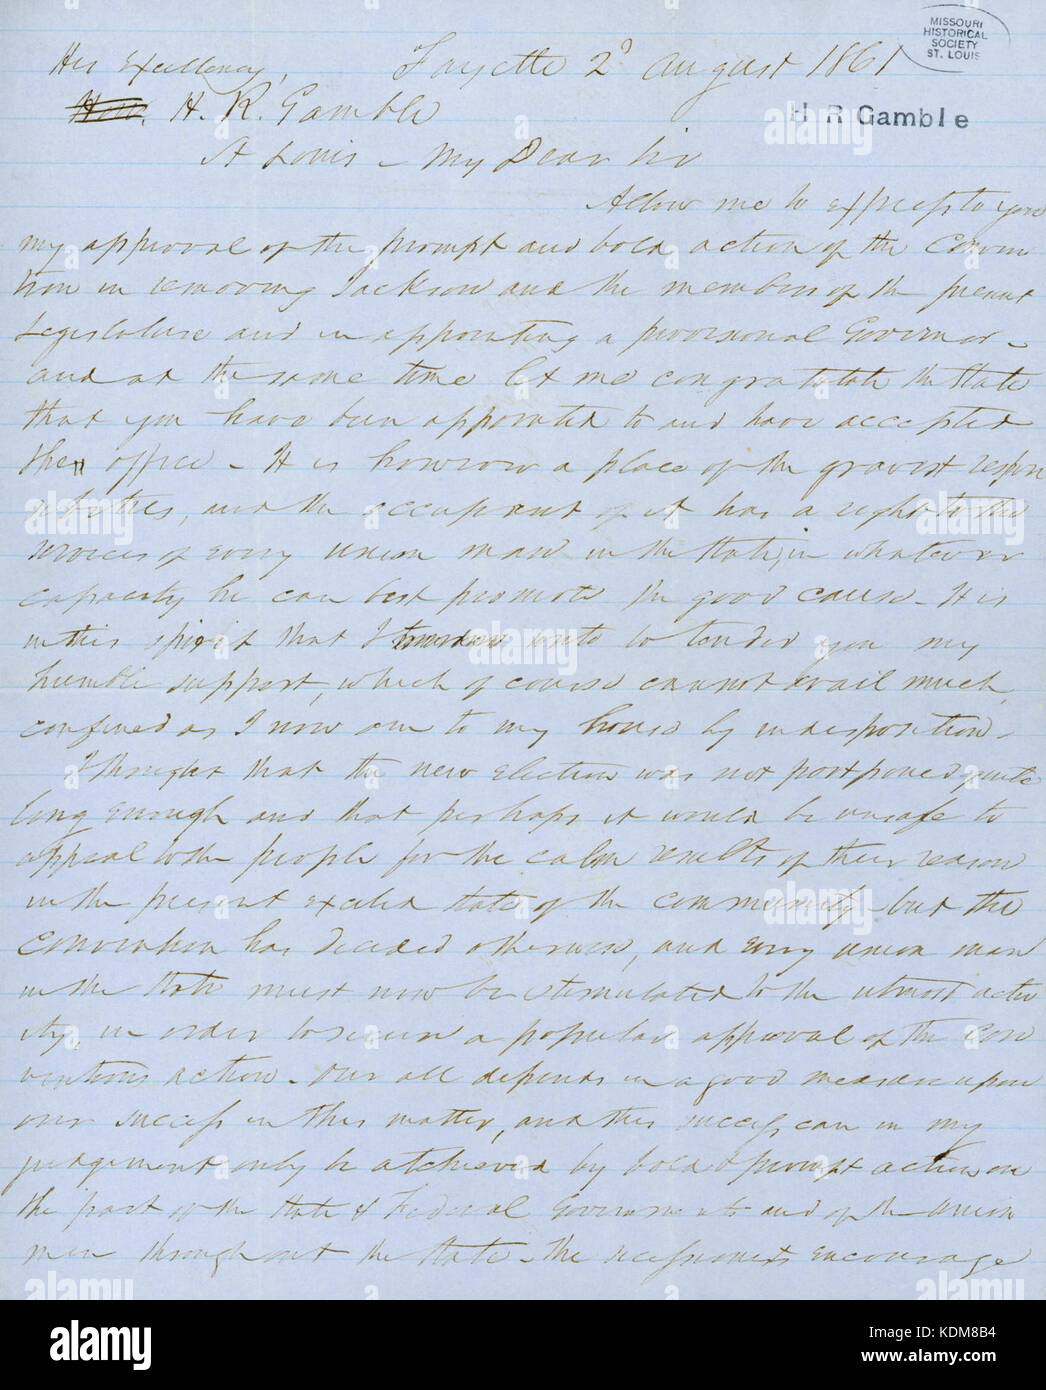 MISSOURI
HISTORICAL
SOCIETY
ST. LOUIS
His Excellency, Fayette 2d August 1861
Hon. H. R. Gamble
H R Gamble
St Louis – My Dear Sir
Allow me to express to you
my approval of the prompt and bold action of the Conven
tion in removing Jackson and the members of the present
Legislature and in appointing a provisional Governor –
and at the same time let me congratulate the State
that you have been appointed to and have accepted
the office – It is however a place of the gravest respon
sibilities, and the occupant of it has a right to the
services of every Union man in the State, in whatever
capacity he can best promote the good cause – It is
in this spirit that I write to tender you my
humble support, which of course cannot avail much,
confined as I now am to my house by indisposition –
I thought that the new election was not postponed quite
long enough and that perhaps it would be unsafe to
appeal to the people for the calm results of their reason
in the present excited state of the community but the
Convention has decided otherwise, and every Union man
in the State must now be stimulated to the utmost activ
ity, in order to secure a popular approval of the Con
ventions action – Our all depends in a good measure upon
our success in this matter, and this success, can in my
judgement only be atchieved by bold & prompt action on
the part of the State & Federal Governments and of the Union
men throughout the State – The secessionists encourage
alamy
alamy stock photo
KDM8B4
www.alamy.com